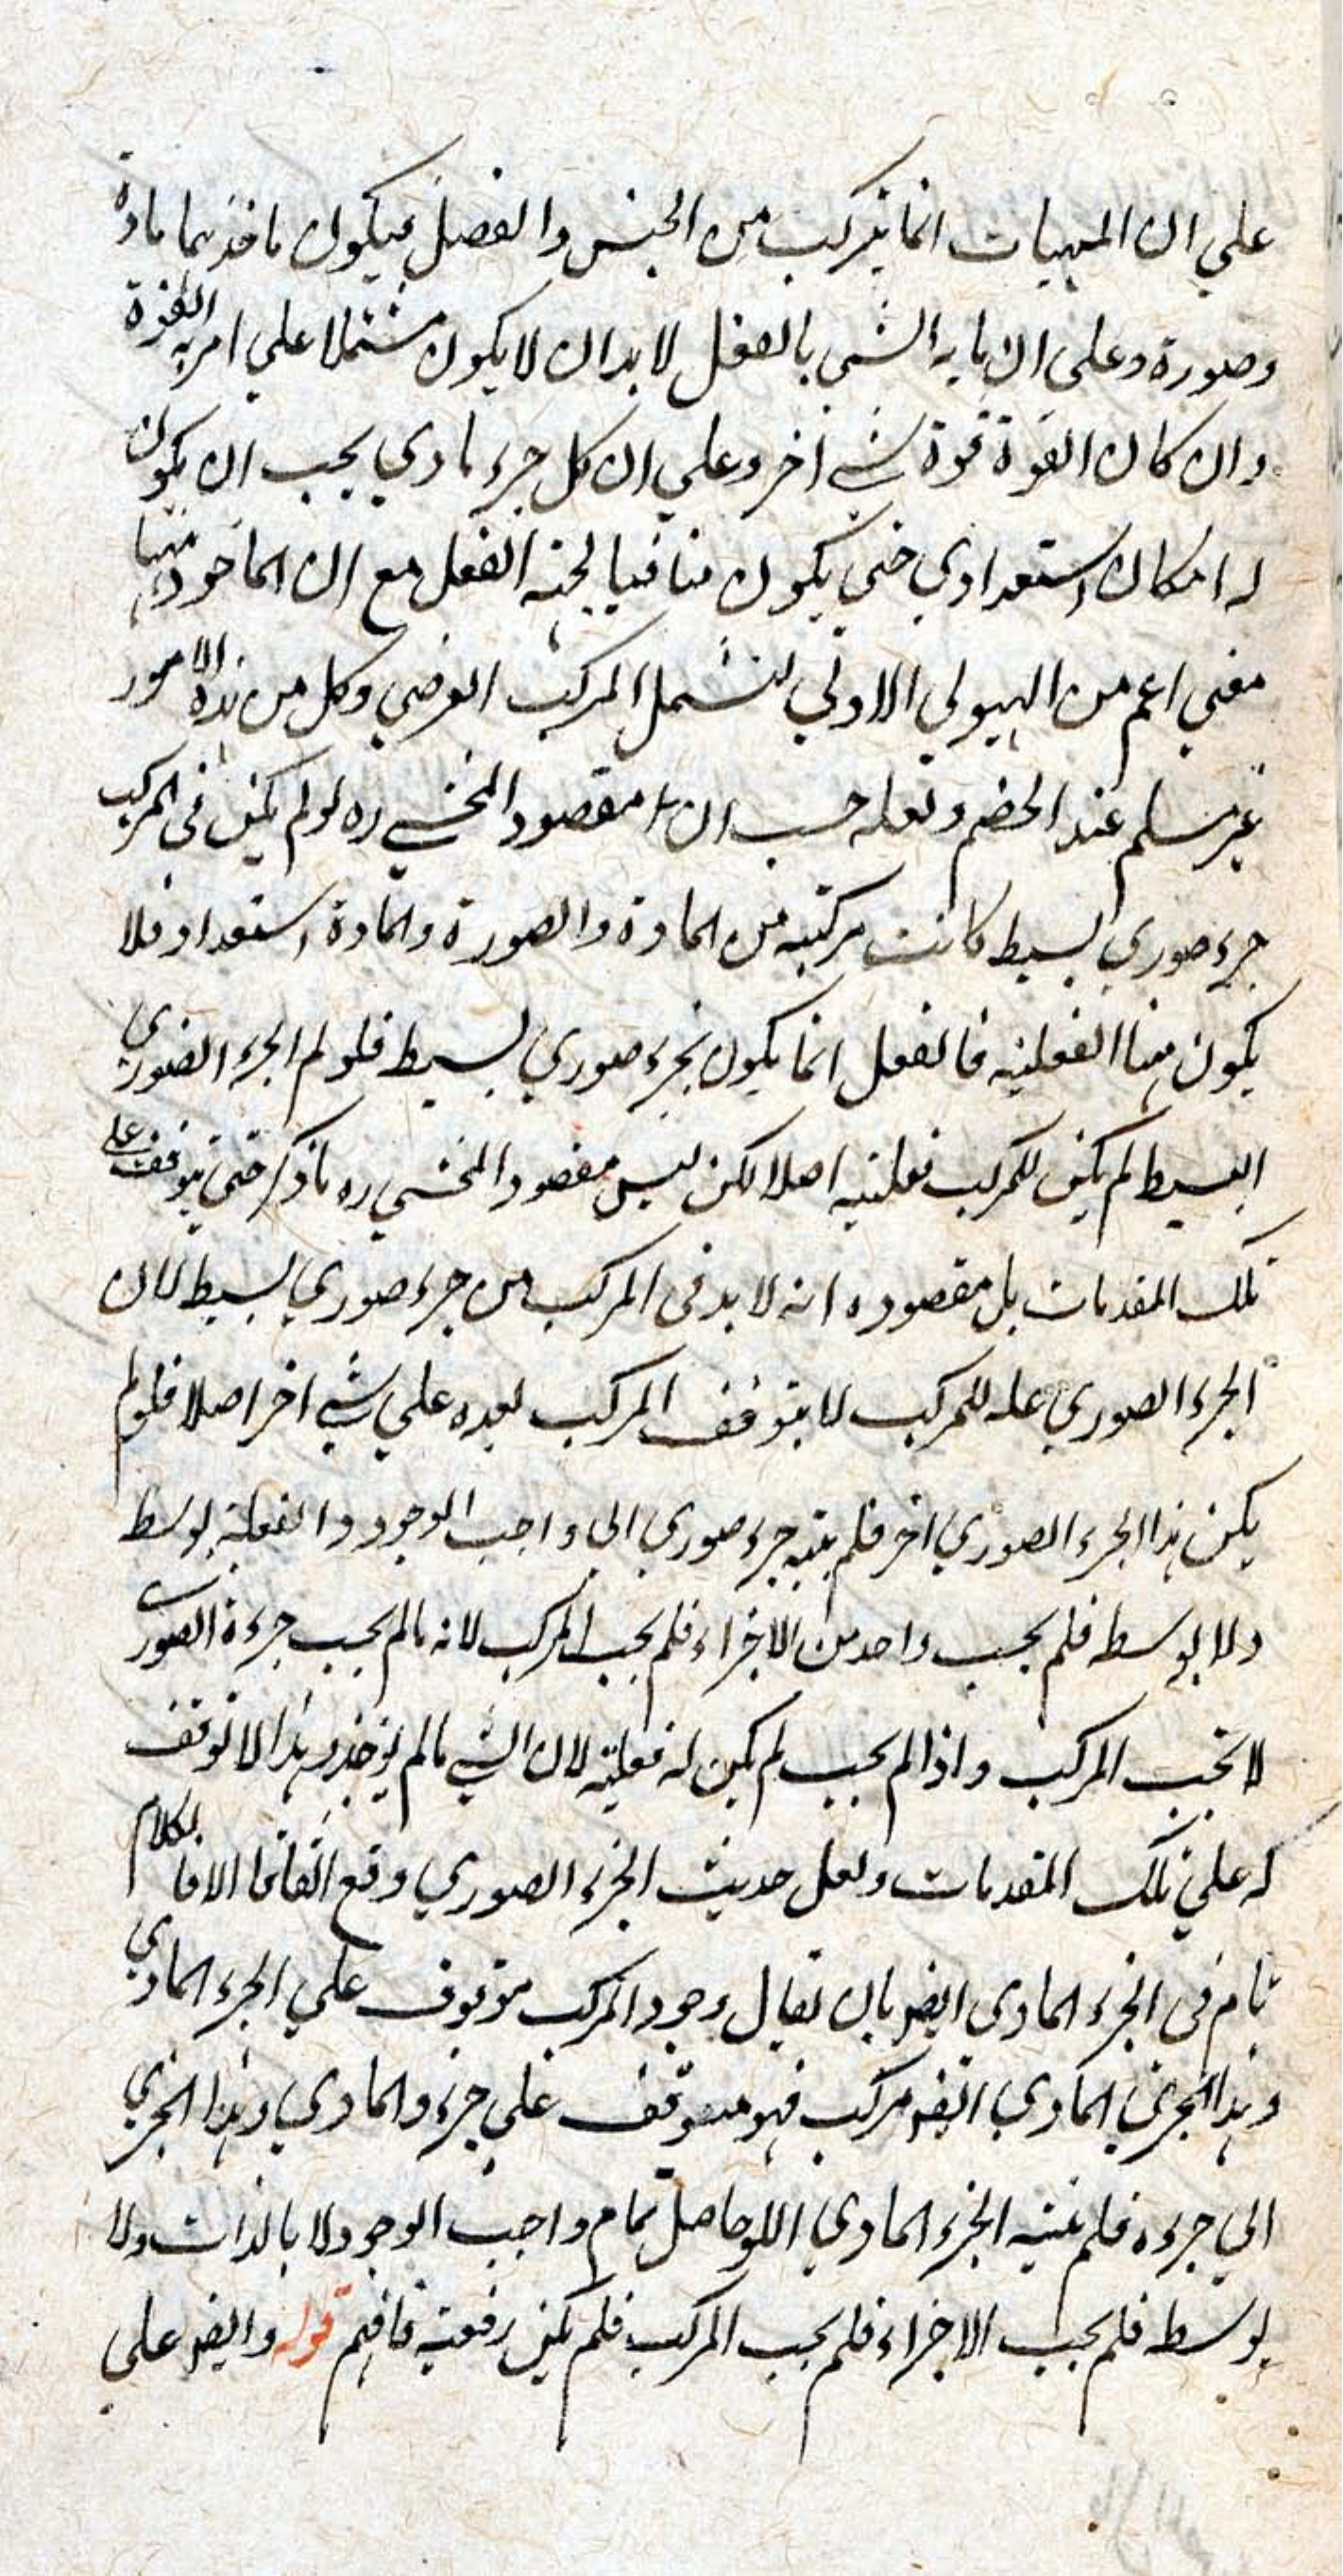 علي ان المهيات انما يتركب من الجنس والفصل فيكون ماخذهما مادة
وصورة وعلى ان ما به الشي بالفعل لا بد ان لا يكون مشتملا علي امر به القوة
وان كان القوة قوة شي اخر وعلي ان كل جزء مادي يجب ان يكون
له امكان استعدادي حتي يكون منافيا لجهة الفعل مع ان الماخوذ ههنا
معني اعم من الهيولي الاولي لتشمل المركب العرضي وكل من هذه الامور
غير مسلم عند الخصم ولعله حسب ان مقصود المحشي ره لو لم يكن في المركب
جزء صوري بسيط كانت مركبته من المادة والصورة والمادة استعداد فلا
يكون هنا الفعلية فالفعل انما يكون بجزء صوري بسيط فلو لم الجزء الصوري
البسيط لم يكن للمركب فعلية اصلا لكن ليس مقصود المحشي ره ما ذكر حتي يتوقف علي
تلك المقدمات بل مقصوده انه لا بد في المركب من جزء صوري بسيط لان
الجزء الصوري علة للمركب لا يتوقف المركب بعده علي شي اخر اصلا فلو لم
يكن هذا الجزء الصوري اخر فلم ينته جزء صوري الي واجب الوجود والفعلية بوسط
ولا بوسطه فلم يجب واحد من الاجزاء فلم يجب المركب لانه ما لم يجب جزءه الصوري
لا يجب المركب واذا لم يجب لم يكن له فعلية لان الشي ما لم يوجد وهذا لا توقف
له علي تلك المقدمات ولعل حديث الجزء الصوري وقع اتفاقا الا فالكلام
تام في الجزء المادي ايضر بان يقال وجود المركب موقوف علي الجزء المادي
وهذا الجزئي المادي ايضر مركب فهو متوقف علي جزءه المادي وهذا الجزئي
الي جزءه فلم ينته الجزء المادي اللوحاصل تمام واجب الوجود لا بالذات ولا
بوسط فلم يجب الاجزاء فلم يجب المركب فلم يكن فعلية فافهم قوله وايضر علي